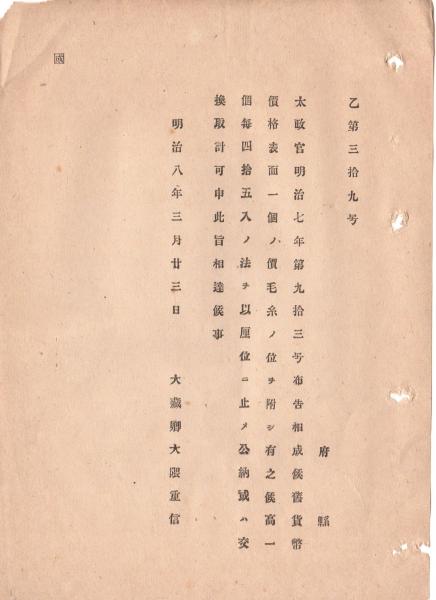 乙第三拾九号
府縣
太政官明治七年第九拾三号布告相成候舊貨幣
價格表面一個ノ價毛糸ノ位ヲ附シ有之候高一
個毎四拾五入ノ法ヲ以厘位ニ止メ公納或ハ交
換取計可申此旨相達候事
明治八年三月廿三日
大藏卿大隈重信
國